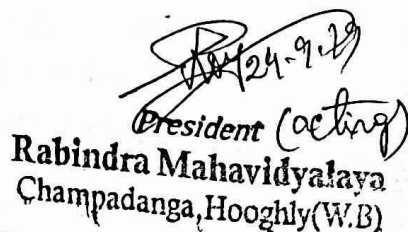 24.9.29
President (acting)
Rabindra Mahavidyalaya
Champadanga, Hooghly(W.B)